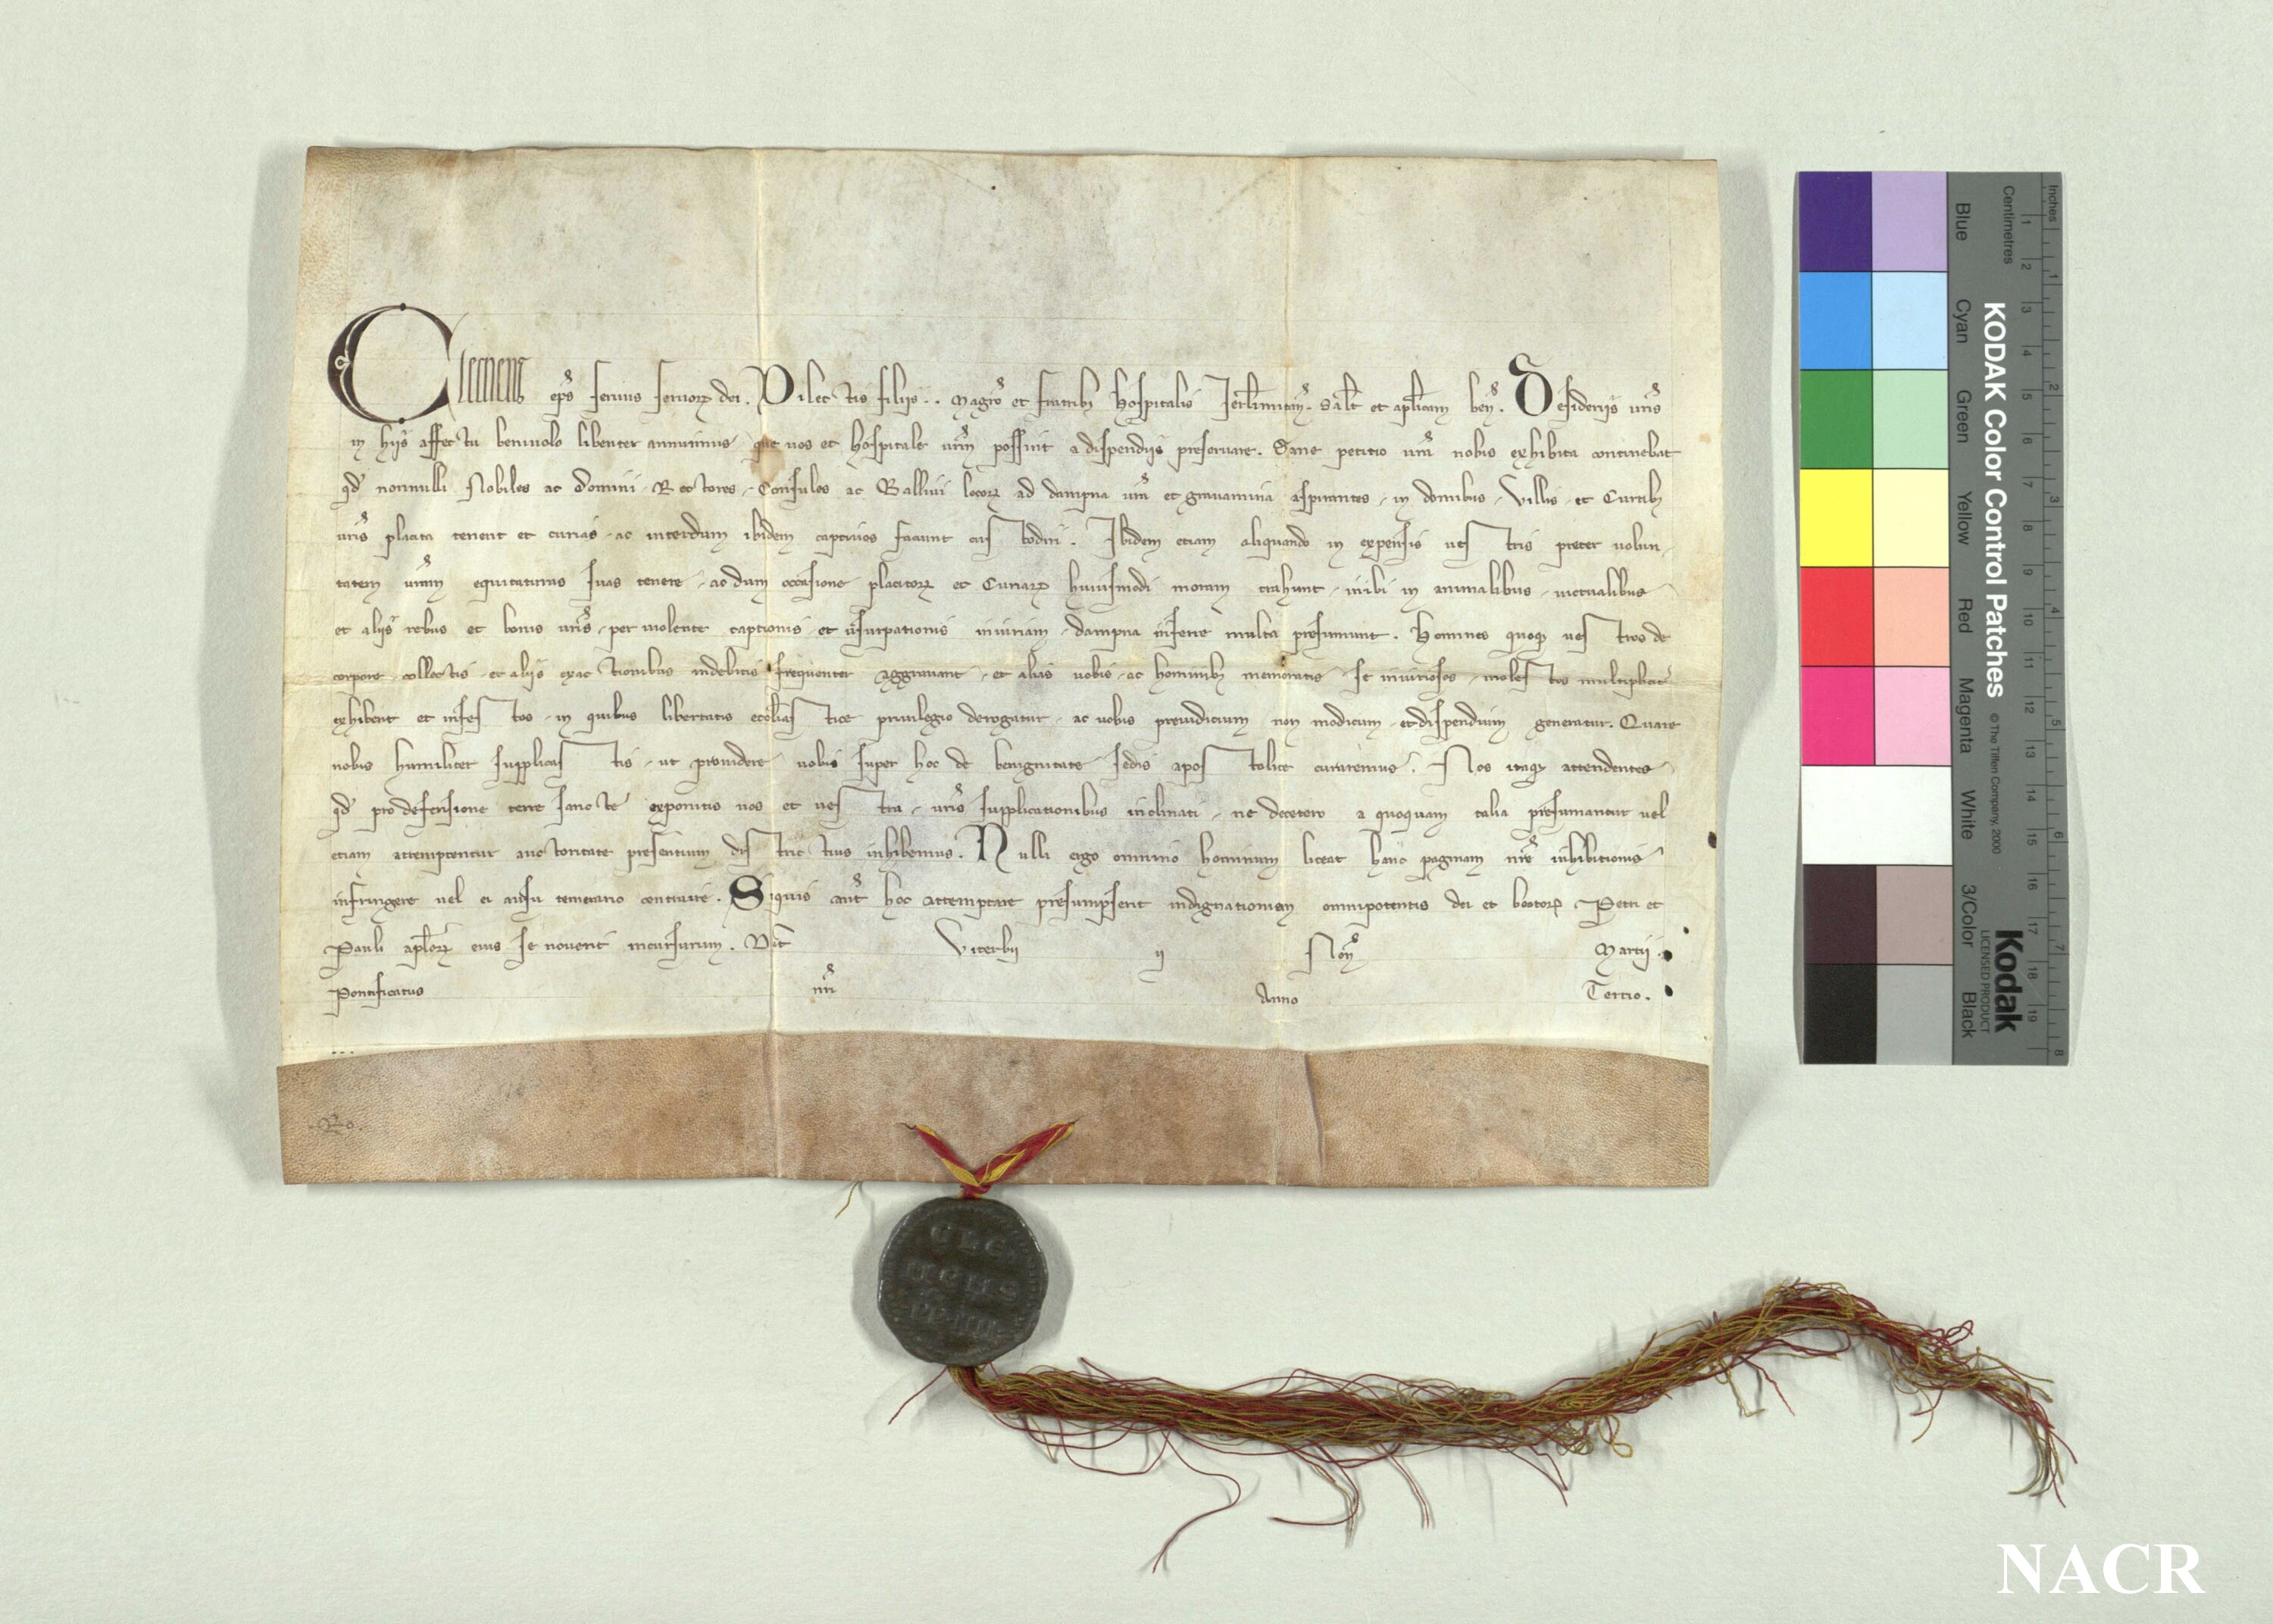 Clemens ep̄s seruus seruoꝝ dei. Dilectis filijs .. Magr̄o et fratribꝫ Hospitalis Jerl̄imitan̄. Sal̄t et apl̄icam ben̄. Desiderijs ur̄is
in hijs affectu beniuolo libenter annuimus, que uos et hospitale ur̄m possint a dispendijs preseruare. Sane petitio ur̄a nobis exhibita continebat
qd̄ nonnulli Nobiles ac domini, Rectores, Consules ac Balliui locoꝝ ad dampna ur̄a et grauamina aspirantes, in domibus, Villis et Curtibꝫ
ur̄is placita tenent et curias, ac interdum ibidem captiuos faciunt custodiri. Ibidem etiam aliquando in expensis uestris preter uolun-
tatem ur̄am equitaturas suas tenere, ac dum occasione placitoꝝ et Curiaꝝ huiusmodi moram trahunt, inibi in animalibus, uictualibus
et alijs rebus et bonis ur̄is, per uiolente captionis et usurpationis iniuriam, dampna inferre multa presumunt. Homines quoqꝫ uestros de
corpore, collectis, et alijs exactionibus indebitis frequenter aggrauant, et alias uobis, ac hominibꝫ memoratis se iniuriosos, molestos multiplicit̄
exhibent et infestos, in quibus libertatis eccl̄iastice priuilegio derogatur, ac uobis preiudicium non modicum, et dispendium generatur. Quare
nobis humiliter supplicastis, ut prouidere uobis super hoc de benignitate sedis apostolice curaremus. Nos itaqꝫ attendentes
qd̄ pro defensione terre sancte exponitis uos et uestra, ur̄is supplicationibus inclinati, ne decetero a quoquam talia presumantur uel
etiam attemptentur auctoritate presentium districtius inhibemus. Nulli ergo omnino hominum liceat hanc paginam nr̄e inhibitionis
infringere uel ei ausu temerario contraire. Siquis aut̄ hoc attemptare presumpserit indignationem omnipotentis dei et beatoꝝ Petri et
Pauli apl̄oꝝ eius se nouerit incursurum. Dat̄ Viterbij ij Non̄ Martij.
Pontificatus nr̄i Anno Tercio.
Ro.
CLE
MENS
PP IIII
KODAK Color Control Patches © The Tiffen Company, 2000
Kodak
LICENSED PRODUCT
Blue Cyan Green Yellow Red Magenta White 3/Color Black
Inches 1 2 3 4 5 6 7 8
Centimetres 1 2 3 4 5 6 7 8 9 10 11 12 13 14 15 16 17 18 19
NACR